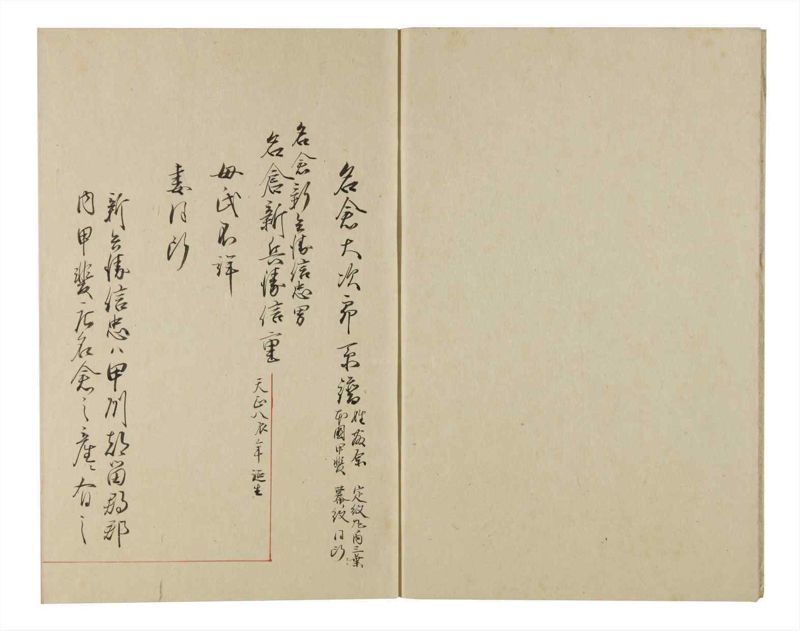 名倉大次郎系譜
姓藤原
本國甲斐
定紋丸内三葉
幕紋同断
名倉新兵衛信忠男
名倉新兵衛信重
天正八辰年誕生
母氏不詳
妻同断
新兵衛信忠ハ甲州都留郡
内甲斐名倉之産ニ有之